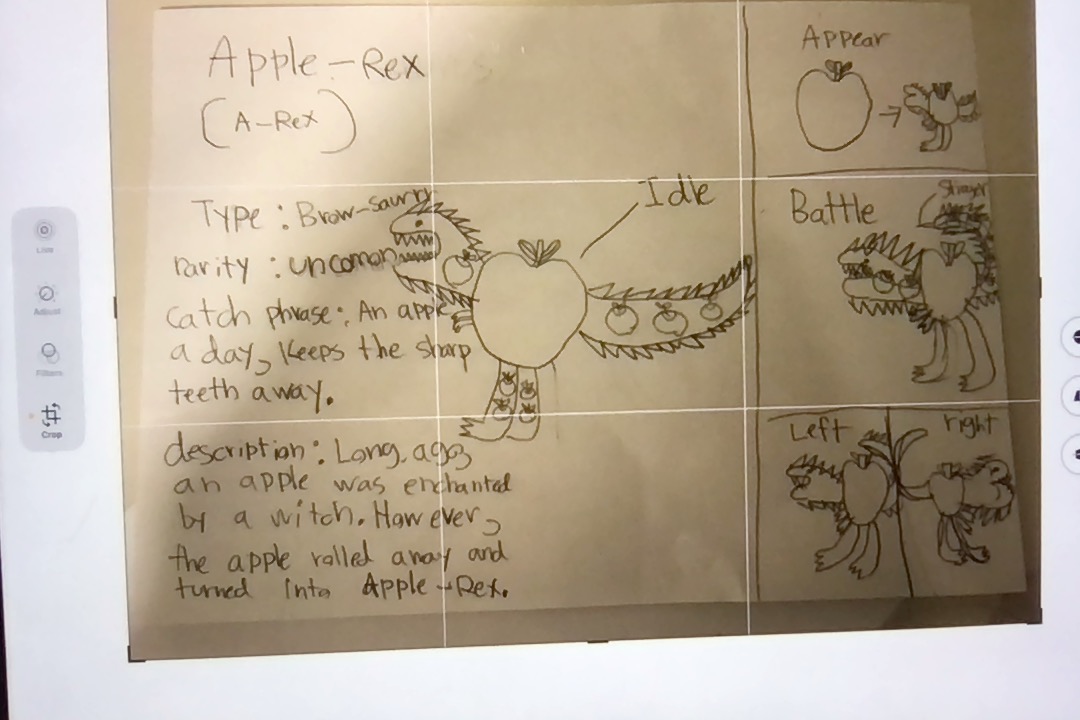 Apple-Rex
(A-Rex)
Type: Brow-saurry
rarity: uncomon
catch phrase: An apple
a day, Keeps the sharp
teeth away.
description: Long, ago,
an apple was enchanted
by a witch. However,
the apple rolled away and
turned into Apple-Rex.
Idle
Appear
Battle
Left
right
Live
Adjust
Filters
Crop